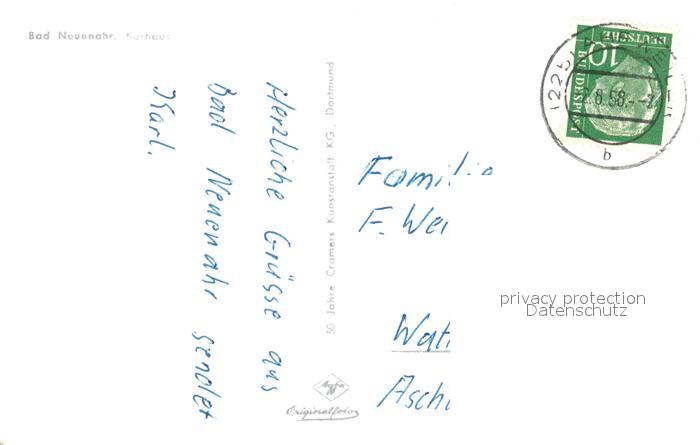 Bad Neuenahr. Kurhaus
Herzliche Grüsse aus
Bad Neuenahr sendet
Karl.
50 Jahre Cramers Kunstanstalt KG, Dortmund
Agfa
Originalfoto
DEUTSCHE
BUNDESPOST
10
(22b)
8.58.-
b
Familie
F. Wei
Wat
Asch
privacy protection
Datenschutz